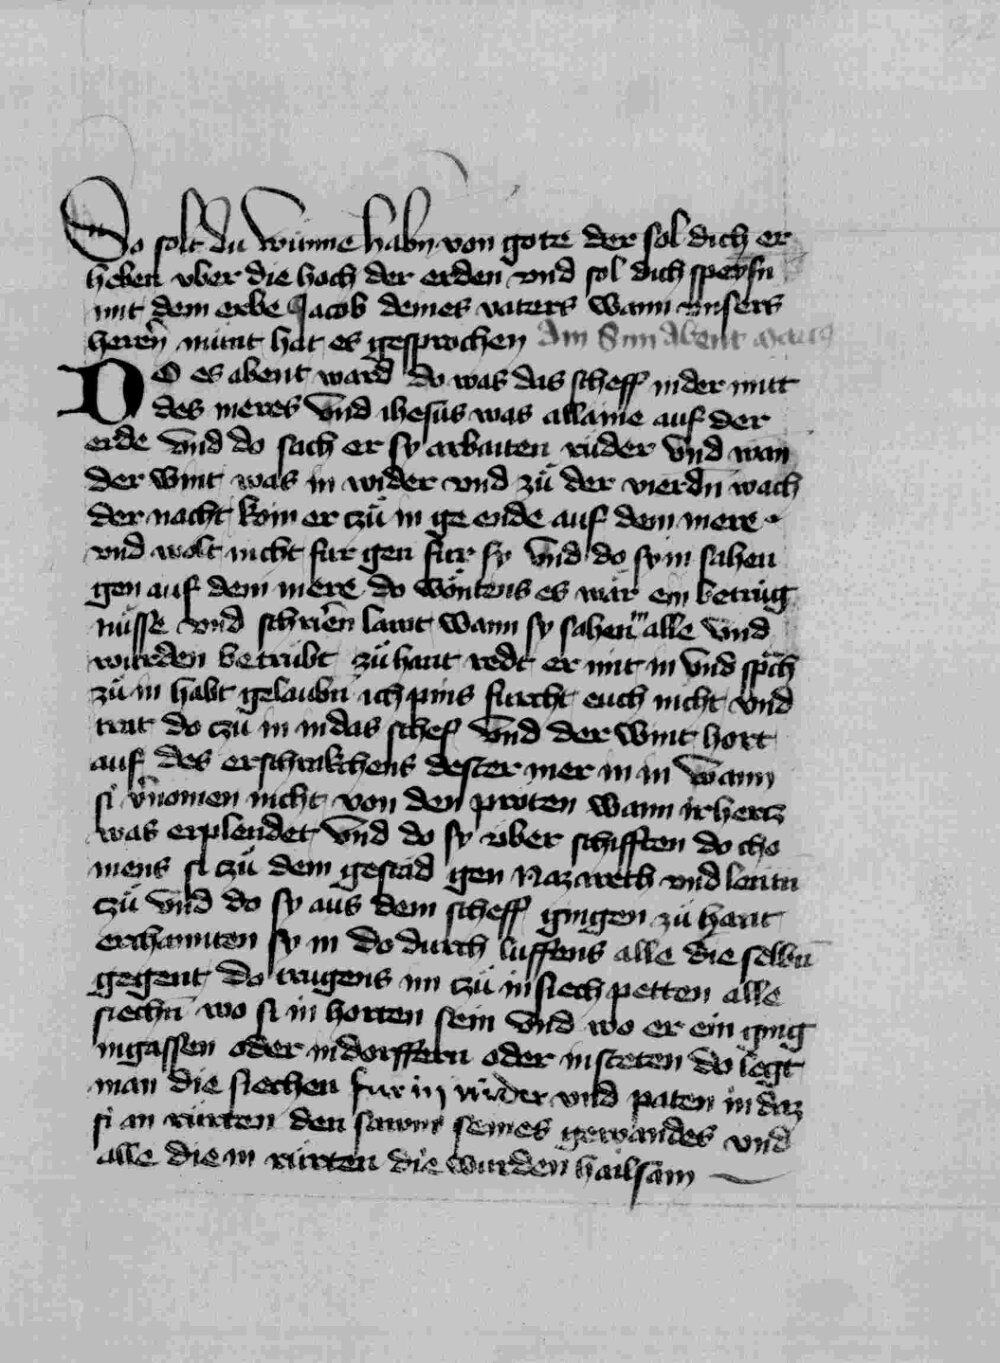 So solt du wunne habn von gote der sol dich er
heben vber die hoch der erden vnd sol dich speysn
mit dem erbe Jacob deines vaters wann vnsers
herrn munt hat es gesprochen Am Sunabent
DO es abent ward do was das scheff in der mitt
des meres vnd ihesus was allaine auf der
erde vnd do sach er sy arbaiten rüder vnd wan
der wint was in wider vnd zü der vierdn wach
der nacht kom er czü in ge ende auf dem mere
vnd wolt nicht fur gen für sy vnd do sy in sahen
gen auf dem mere do wöntens es wär ein betrüg
nüsse vnd schrien lawt wann sy sahen in alle vnd
wurden betrübt zü hant redt er mit in vnd sprach
zü in habt gelaubn ich pins furcht euch nicht vnd
trat do czü in in das schef vnd der wint hort
auf des erschrakchens dester mer in in wann
si vernomen nicht von den proten wann ir hercz
was erplendet vnd do sy über schifften do cho
mens si czü dem gestad gen Nazareth vnd lentn
czü vnd do sy aus dem scheff gingen zü hant
erchannten sy in do durch luffens alle die selbn
gegent do trugens im czü in siech petten alle
siechn wo si in horten sein vnd wo er ein ging
in gassen oder in dorffern oder in steten do legt
man die siechen für in nider vnd paten in daz
si an rürten den sawm seines gewandes vnd
alle die in rürten die wurden hailsam